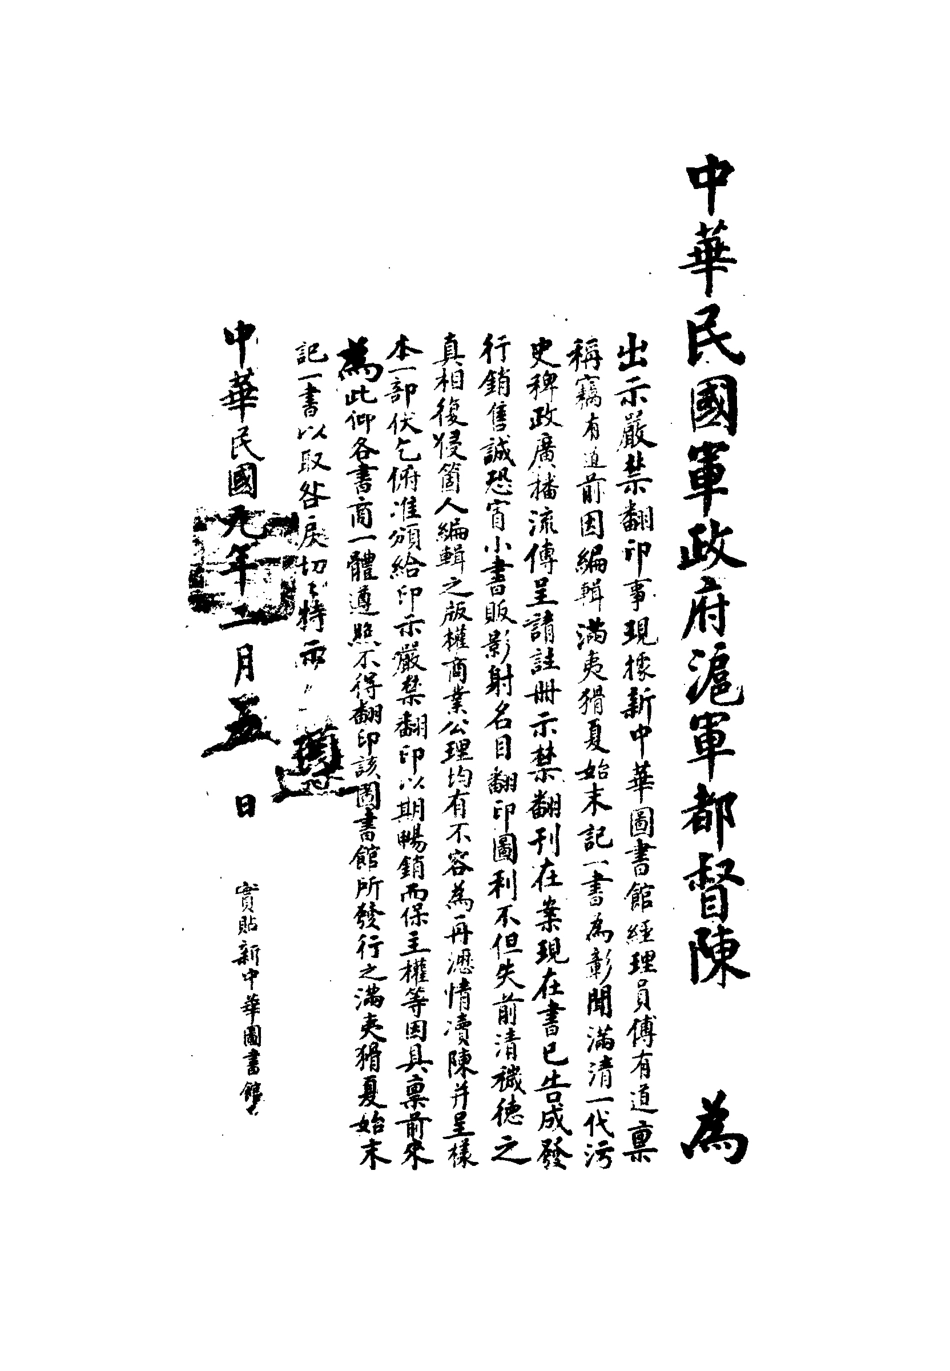 中華民國軍政府滬軍都督陳 為
出示嚴禁翻印事現據新中華圖書館經理員傅有道稟
稱竊有道前因編輯滿夷猾夏始末記一書為彰聞滿清一代污
史穢政廣播流傳呈請註冊示禁翻刊在案現在書已告成發
行銷售誠恐宵小書販影射名目翻印圖利不但失前清穢德之
真相復侵箇人編輯之版權商業公理均有不容為再瀝情瀆陳并呈樣
本一部伏乞俯准頒給印示嚴禁翻印以期暢銷而保主權等因具稟前來
為此仰各書商一體遵照不得翻印該圖書館所發行之滿夷猾夏始末
記一書以取咎戾切切特示
遵
中華民國元年二月五日
實貼新中華圖書館